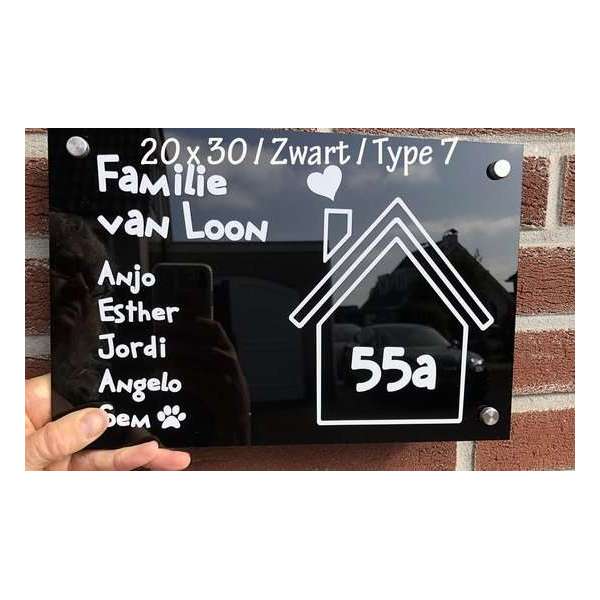 20 x 30 / Zwart / Type 7
Familie
van Loon
Anjo
Esther
Jordi
Angelo
Sem
55a